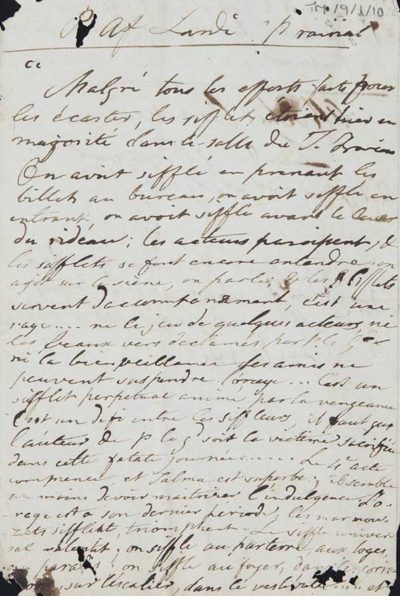 TM 19/1/10
Lundi Prairial
"
Malgré tous les efforts faits pour
les écarter, les sifflets étoient hier en
majorité dans la salle du T. français
On avoit sifflé en prenant les
billets au bureau, on avoit sifflé en
entrant, on avoit sifflé avant le lever
du rideau; les acteurs paroissent, &
les sifflets se font encore entendre; on
agit sur la scène, on parle, & les sifflets
servent d'accompagnement, c'est une
rage.... ni le jeu de quelques acteurs, ni
les beaux vers déclamés par
ni la bienveillance des amis ne
peuvent suspendre l'orage... C'est un
sifflet perpetuel animé par la vengeance
C'est un défi entre les siffleurs, il faut que
l'auteur de soit la victime sacrifiée
dans cette fatale journée.... Le 4e acte
commence, et Talma est superbe; il semble
au moins devoir maitriser l'indulgence. La
rage est à son dernier période, les
sifflent, triomphent. Le sifflet univer-
sel retentit; on siffle au parterre, aux loges,
au paradis; on siffle au foyer, dans les corri-
dors sur l'escalier, dans le vestibule.... et